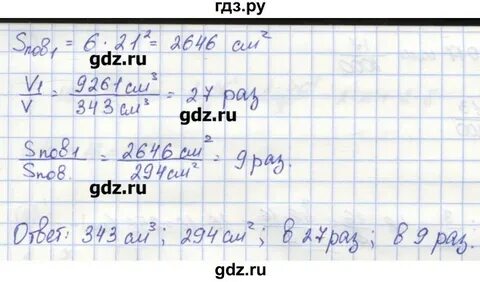 гдз.ру
Sпов₁ = 6 · 21² = 2646 см²
гдз.ру
V₁/V = 9261 см³/343 см³ = 27 раз
гдз.ру
Sпов₁/Sпов. = 2646 см²/294 см² = 9 раз.
гдз.ру
Ответ: 343 см³; 294 см²; в 27 раз; в 9 раз.
gdz.ru